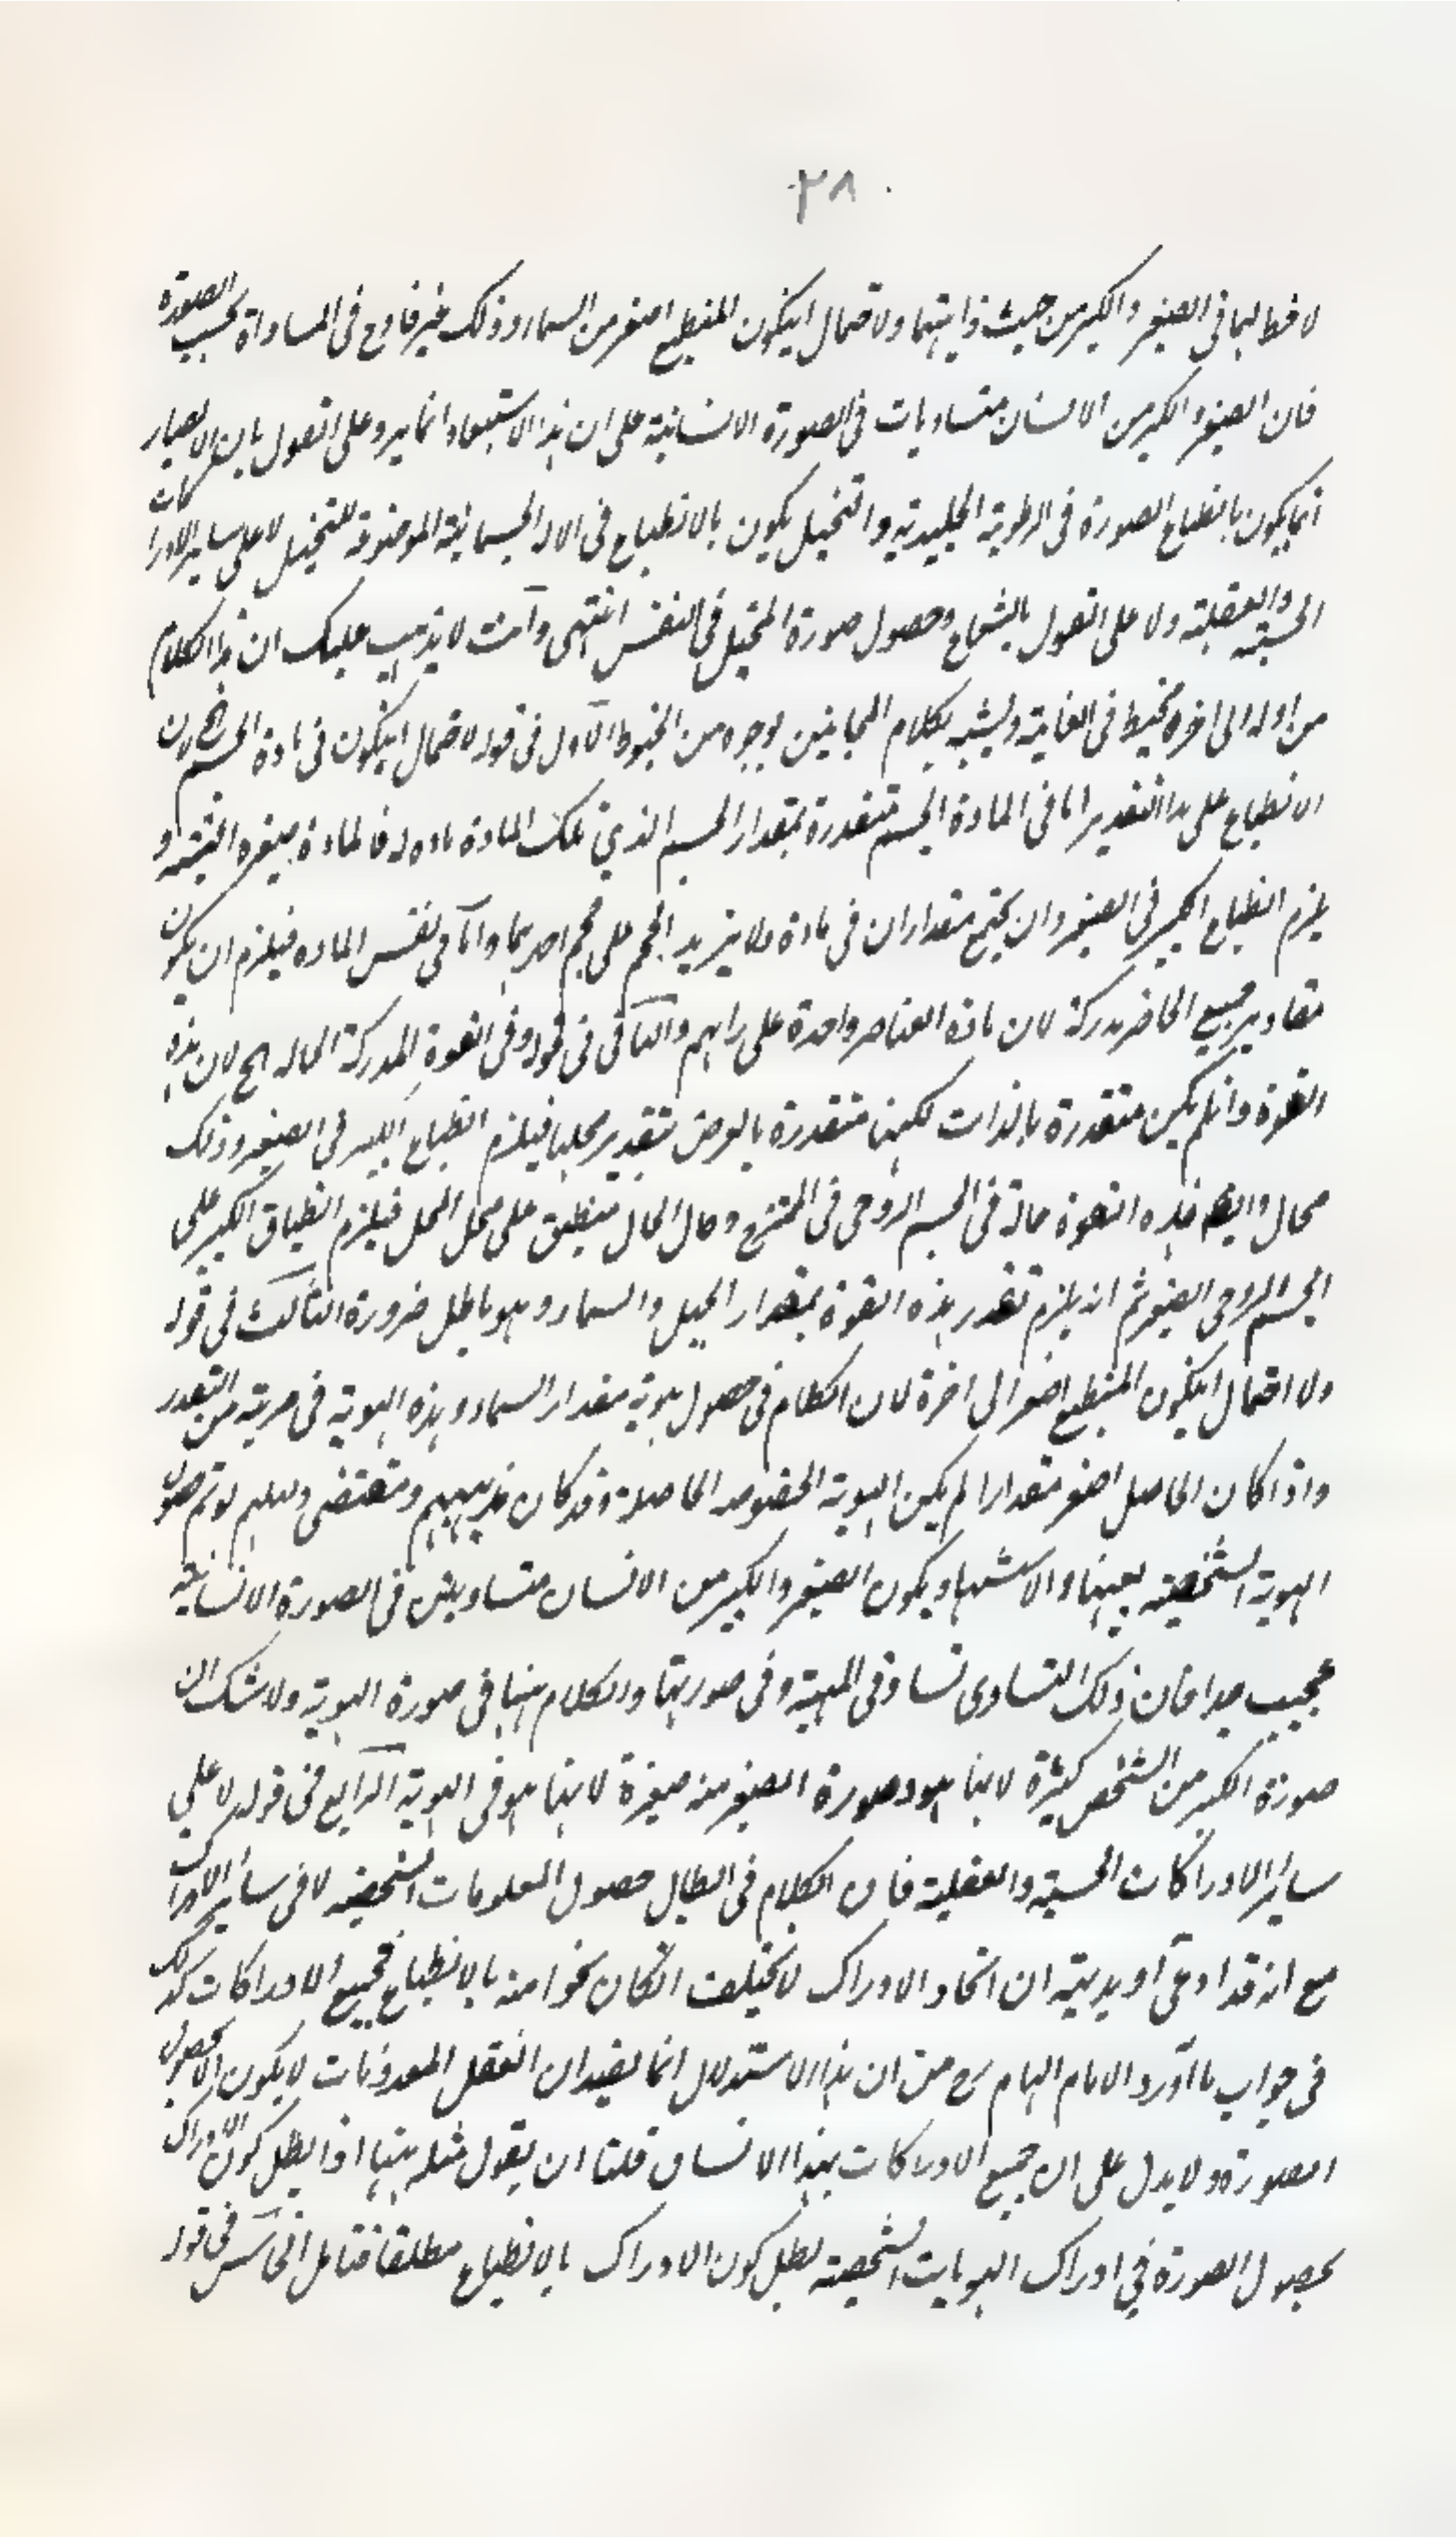 ٢٨
لا حظ لهما فى الصغير والكبير من حيث ذاتيهما ولاحتمال ان يكون المنطبع اصغر من السماء وذلك غير قادح فى المساواة بحسب الصورة
فان الصغير والكبير من الانسان متساويات فى الصورة الانسانية على ان هذا الاستبعاد انما يرد على القول بان الابصار
انما يكون بانطباع الصورة فى الرطوبة الجليدية والتخيل يكون بالانطباع فى الالة الجسمانية الموضوعة للتخيل لا على سائر الادراكات
الحسية والعقلية ولا على القول بالشعاع وحصول صورة المتخيل فى النفس انتهى وانت لا يذهب عليك ان هذا الكلام
من اوله الى اخره تخبط فى الغاية ويشبه بكلام المجانين بوجوه من الخبوط الاول فى قوله لاحتمال ان يكون فى مادة الجسم لان
الانطباع على هذا التقدير اما فى المادة الجسم متقدرة بمقدار الجسم الذى تلك المادة مادة له فالمادة صغيرة الجثة و
يلزم انطباع الكبير فى الصغير وان يجتمع مقداران فى مادة ولا يزيد الحجم على حجم احدهما واما فى نفس المادة فيلزم ان يكون
مقادير جميع الحاضر مدركة لان مادة العناصر واحدة على رايهم والثانى فى قوله وفى القوة المدركة الحالة الخ لان هذه
القوة وان لم يكن متقدرة بالذات لكنها متقدرة بالعرض بتقدير محلها فيلزم انطباع الكبير فى الصغير وذلك
محال وايضا هذه القوة حالة فى الجسم الروحى فى المتنزع وحال الحال منطبق على محل المحل فيلزم انطباق الكبير على
الجسم الروحى الصغير ثم انه يلزم تقدر هذه القوة بمقدار الجبل والسماء وهو باطل ضرورة الثالث فى قوله
ولا احتمال ان يكون المنطبع اصغر الى اخره لان الكلام فى حصول هوية مقدار السماء وهذه الهوية فى مرتبة من التقدر
واذا كان الحاصل اصغر مقدارا لم يكن الهوية المخصوصة الحاصلة وقد كان مذهبهم ومقتضى دليلهم لو تم حصول
الهوية الشخصية بعينها والاستشهاد بكون الصغير والكبير من الانسان متساويين فى الصورة الانسانية
عجيب جدا فان ذلك التساوى تساو فى المهية وفى صورتها والكلام ههنا فى صورة الهوية ولا شك ان
صورة الكبير من الشخص كبيرة لانها هو وصورة الصغير منه صغيرة لانها هو فى الهوية الرابع فى قوله لا على
سائر الادراكات الحسية والعقلية فان الكلام فى ابطال حصول المعلومات الشخصية لا فى سائر الادراك
مع انه قد ادعى او بديهة ان اتحاد الادراك لا يختلف ان كان نحوا منه بالانطباع فجميع الادراكات كذلك
فى جواب ما اورد الامام الهام رح من ان هذا الاستدلال انما يفيد ان تعقل المعدومات لا يكون الا بحصول
الصورة ولا يدل على ان جميع الادراكات بهذا الانسان قلنا ان يقول مثله ههنا اذا بطل كون الادراك
بحصول الصورة فى ادراك الهويات الشخصية بطل كون الادراك بالانطباع مطلقا فتامل الخامس فى قوله